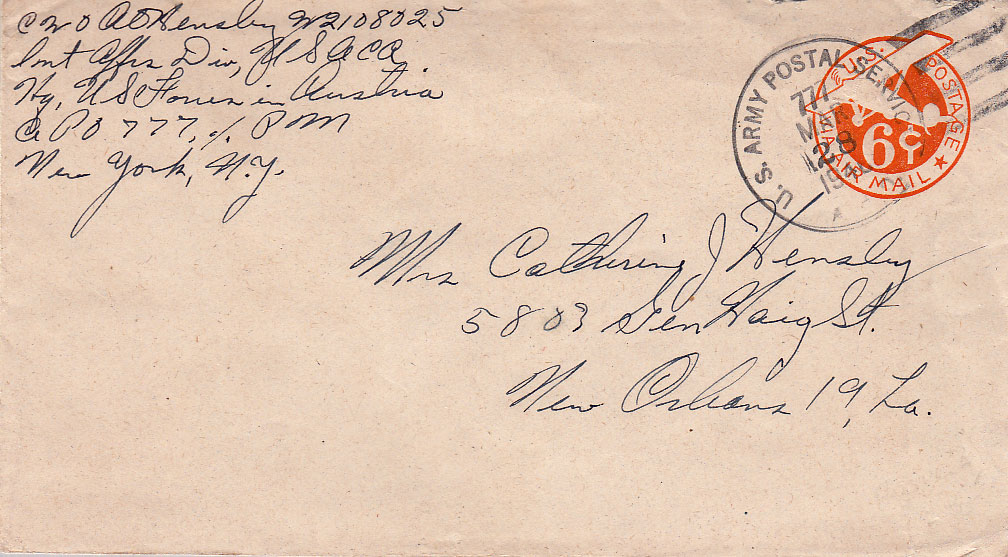 CWO AO Hensley W2108025
Int Affrs Div, USACA
Hq, US Forces in Austria
APO 777, % PM
New York, N.Y.
U.S. ARMY POSTAL SERVICE
777
MAR
28
U.S. POSTAGE
6¢
VIA AIR MAIL
Mrs Catherine J Hensley
5803 Gen Haig St.
New Orleans 19, La.